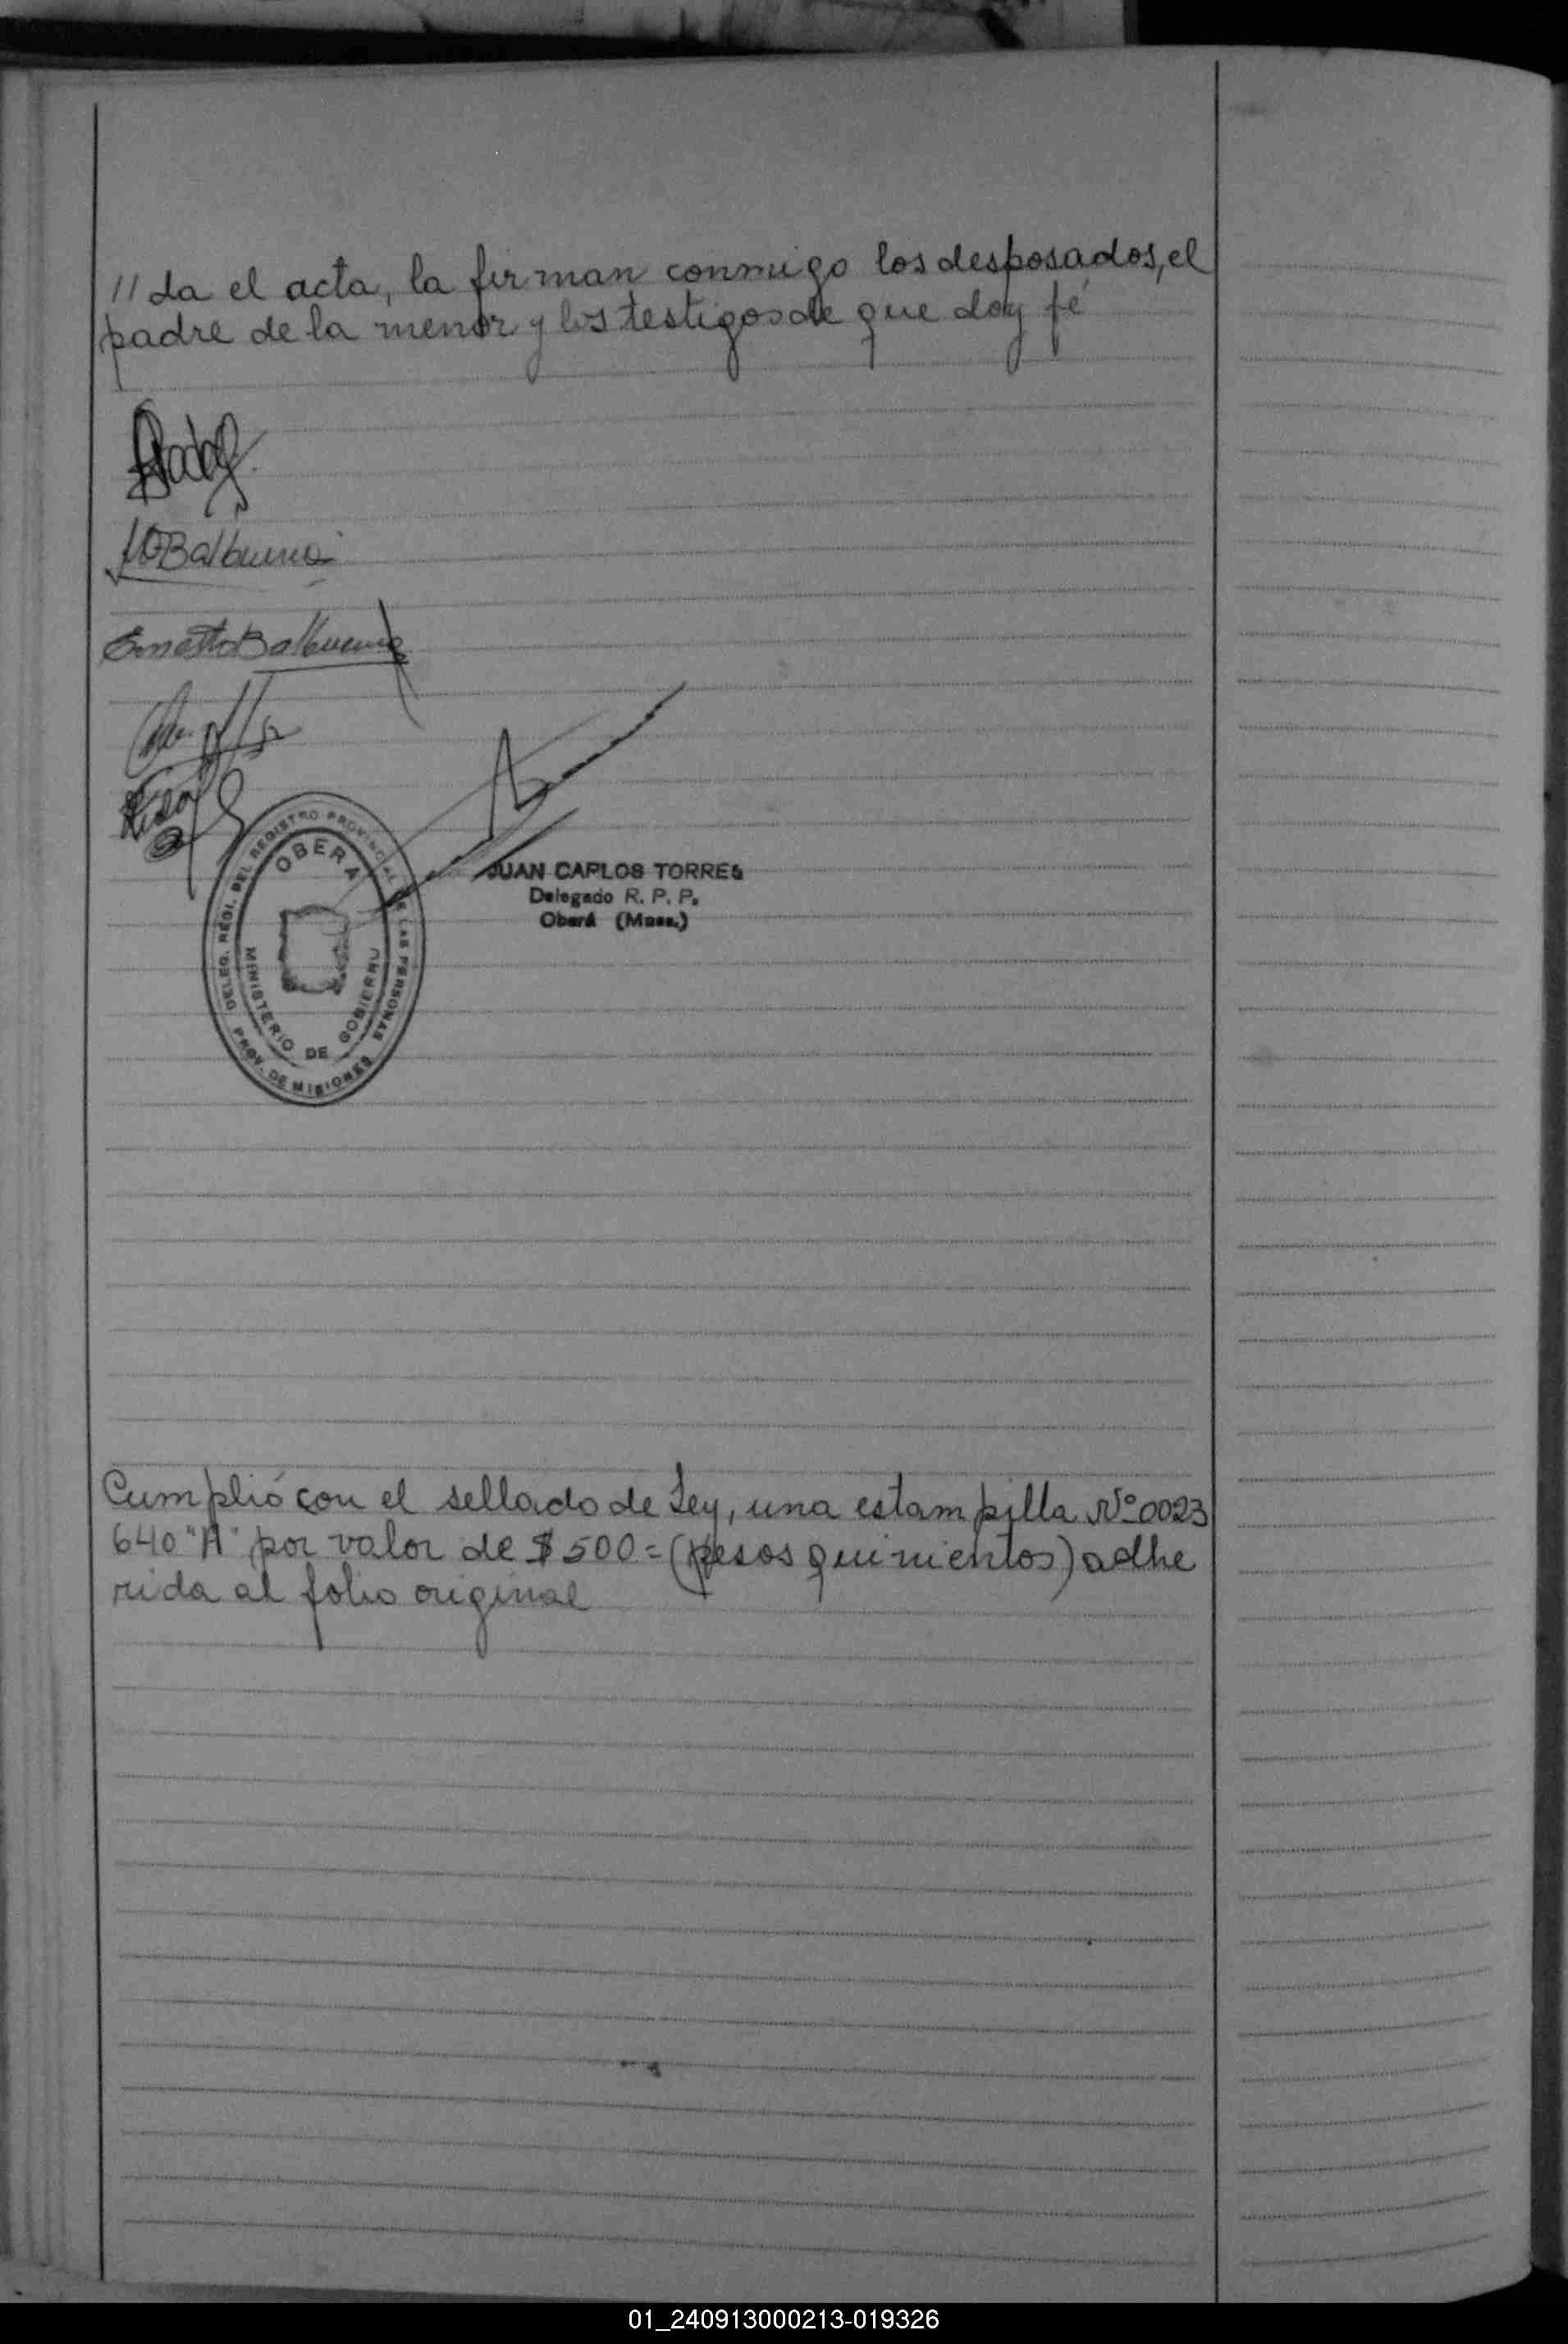 //da el acta, la firman conmigo los desposados, el
padre de la menor y los testigos de que doy fé
Balbuena
Ernesto Balbuena
DELEG. REGI. DEL REGISTRO PROVINCIAL DE LAS PERSONAS
OBERA
MINISTERIO DE GOBIERNO
PROV. DE MISIONES
JUAN CARLOS TORRES
Delegado R. P. P.
Oberá (Mnes.)
Cumplió con el sellado de Ley, una estampilla Nº 0023
640 "A" por valor de $ 500= (pesos quinientos) adhe
rida al folio original
01_240913000213-019326